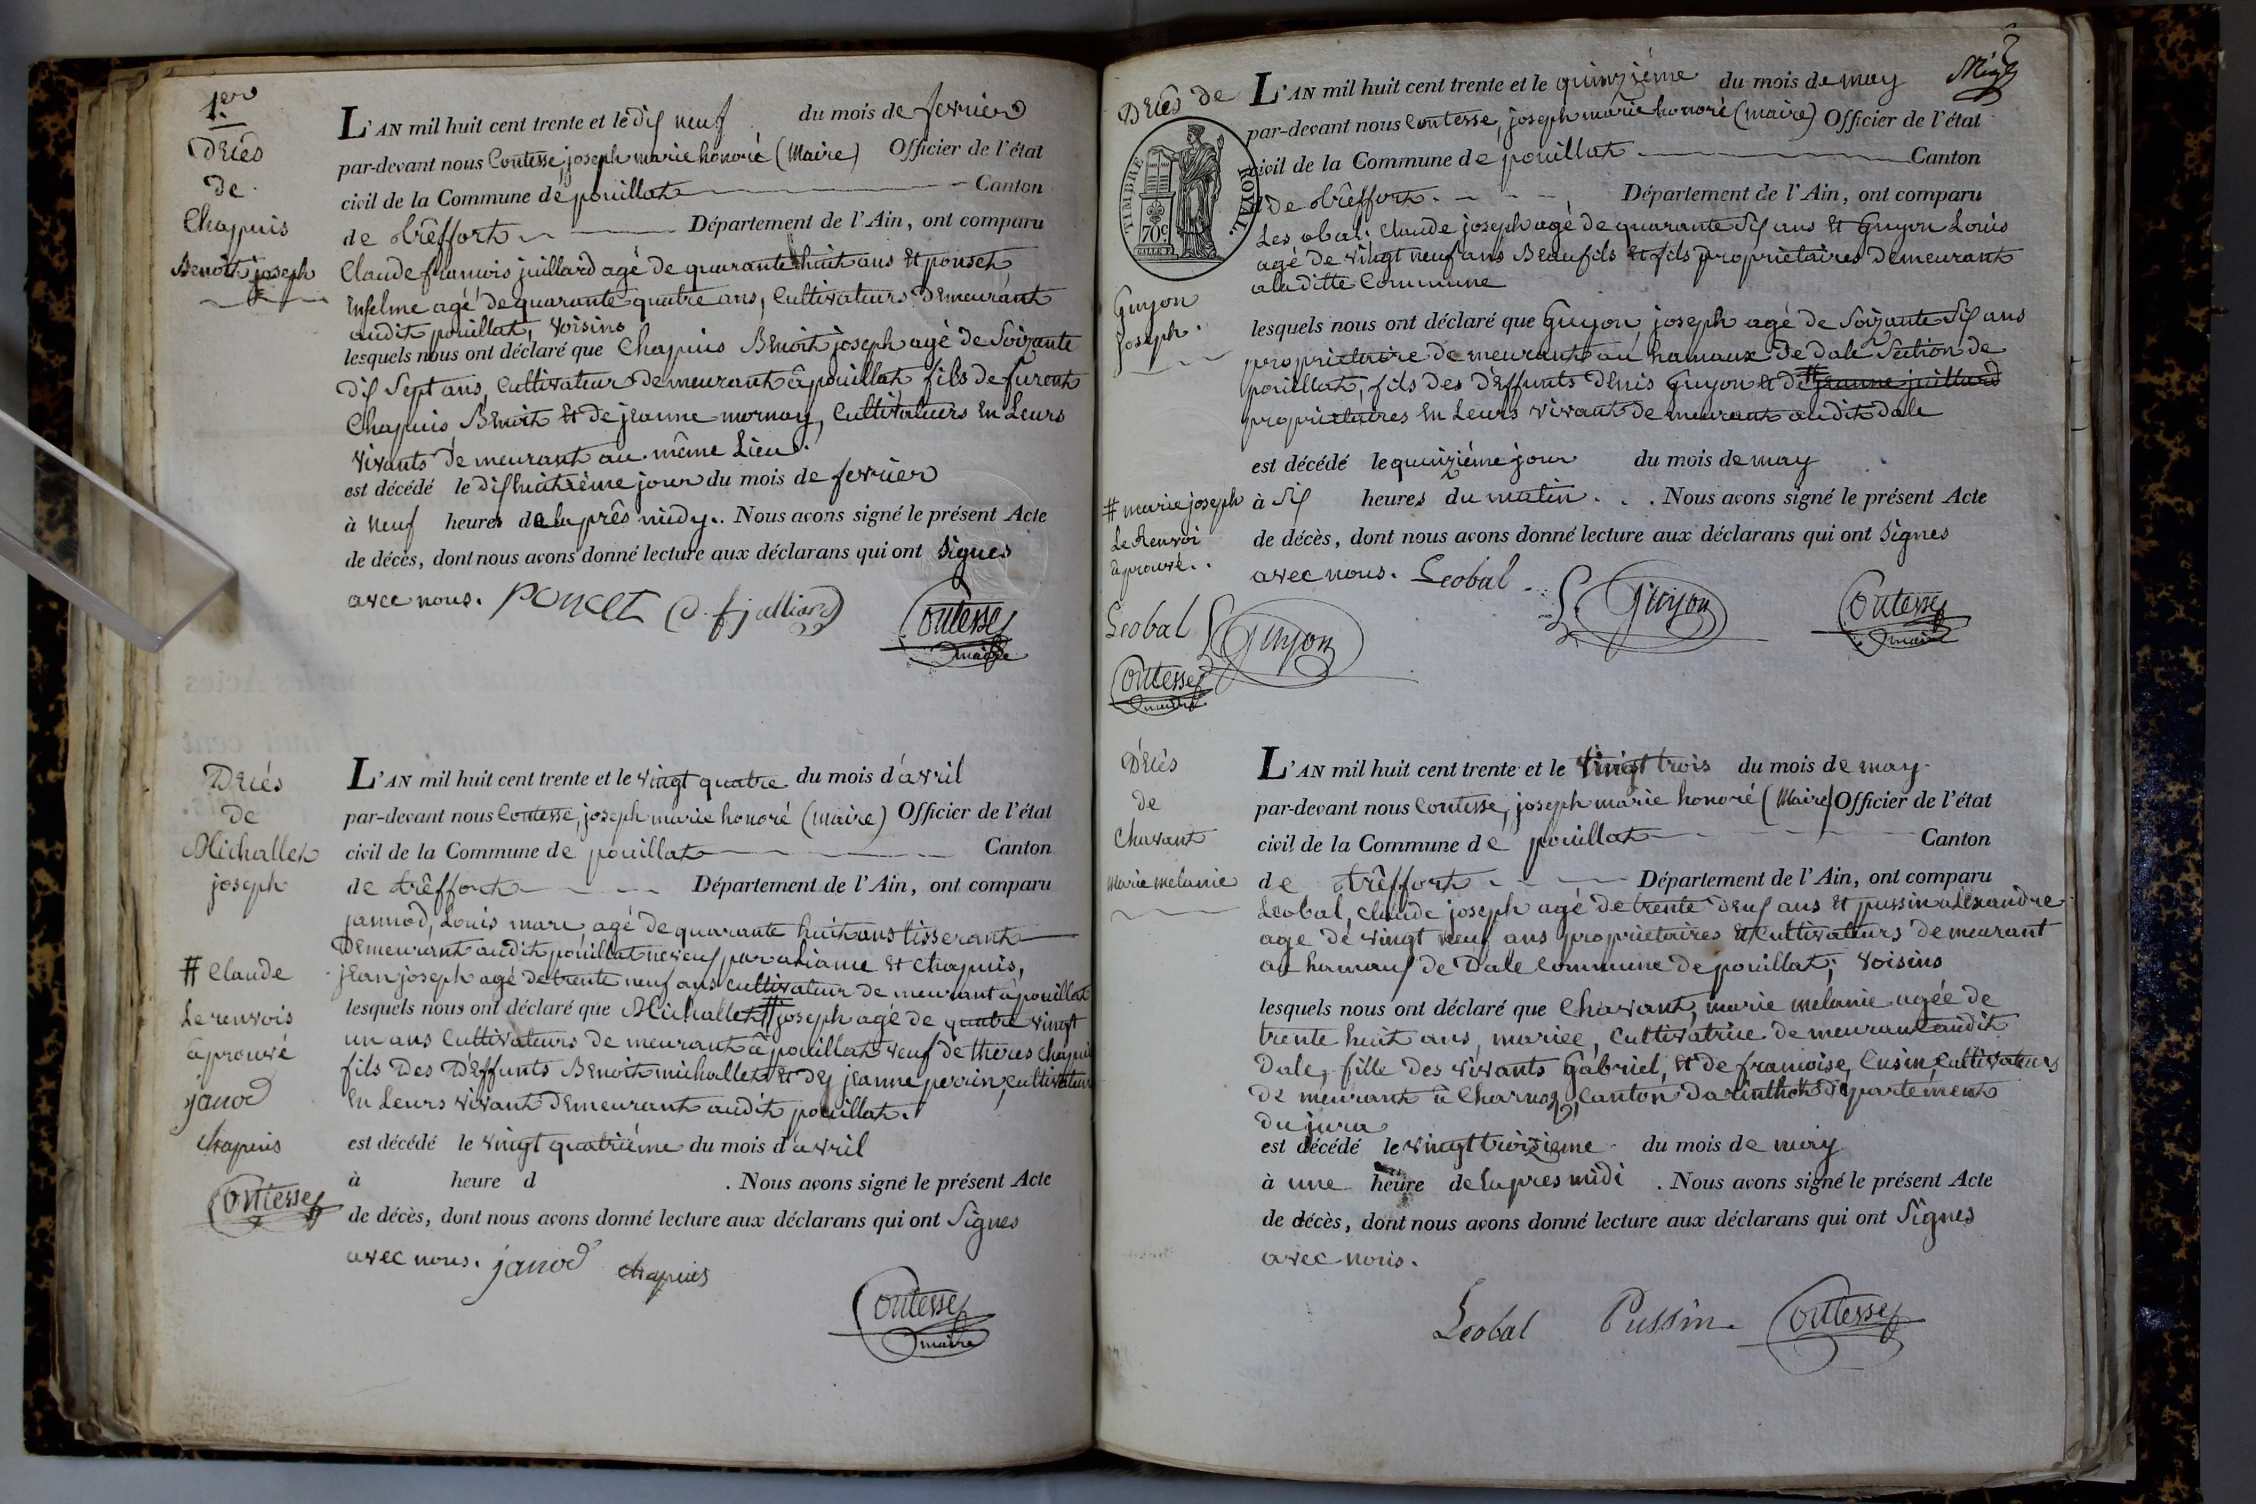 1.er
Décés
de
Chapuis
Benoit joseph
L'AN mil huit cent trente et le dix neuf du mois de fevrier
par-devant nous Contesse, joseph marie honoré (Maire) Officier de l'état
civil de la Commune de pouillat Canton
de trêffort Département de l'Ain, ont comparu
Claude francois juillard agé de quarante huit ans et ponset
enselme agé de quarante quatre ans, Cultivateurs Demeurant
audit pouillat, voisins
lesquels nous ont déclaré que Chapuis Benoit joseph agé de Soixante
dix Sept ans, Cultivateur demeurant à pouillat fils de furent
Chapuis Benoit et de jeanne mornay, Cultivateurs en Leurs
vivants demeurant au même Lieu.
est décédé le dixhuitième jour du mois de fevrier
à neuf heures de laprês midy. Nous avons signé le présent Acte
de décès, dont nous avons donné lecture aux déclarans qui ont Signes
avec nous. PONCET C. f julliard Contesse
maire
Décés
de
Michallet
joseph
# Claude
Le renvois
àprouvé
janod
Chapuis
Contesse
L'AN mil huit cent trente et le vingt quatre du mois d'avril
par-devant nous Contesse, joseph marie honoré (maire) Officier de l'état
civil de la Commune de pouillat Canton
de trêffort Département de l'Ain, ont comparu
jannod, Louis marc agé de quarante huit ans tisserant
Demeurant audit pouillat neveux par aliance et Chapuis,
jean joseph agé de trente neuf ans cultivateur de meurant à pouillat
lesquels nous ont déclaré que Michallet # joseph agé de quatre vingt
un ans Cultivateurs de meurant à pouillat veuf de theres chapuis
fils Des Deffunts Benoit michallet et de jeanne perrin, cultivateurs
en Leurs vivant Demeurant audit pouillat.
est décédé le vingt quatrième du mois d'avril
à heure d . Nous avons signé le présent Acte
de décès, dont nous avons donné lecture aux déclarans qui ont Signes
avec nous. janod chapuis
Contesse
maire
2
Décés de
TIMBRE ROYAL.
70c
Guyon
joseph.
# marie joseph
Le Renvoi
àprouvé..
Leobal L Guyon
Contesse
maire
L'AN mil huit cent trente et le quinzième du mois de may
par-devant nous Contesse, joseph marie honoré (maire) Officier de l'état
civil de la Commune de pouillat Canton
de trêffort. Département de l'Ain, ont comparu
Les obal. Claude joseph agé de quarante Six ans et Guyon Louis
agé de vingt neuf ans Beaufils et fils propriètaires Demeurant
a la ditte Commune
lesquels nous ont déclaré que Guyon joseph agé de Soixante Six ans
propriètaire de meurant au hamaux de dale Section de
pouillat, fils des deffunts denis Guyon et de # jeanne juillard
propriètaires en Leurs vivant de meurant audit dale
est décédé le quinzième jour du mois de may
à Six heures du matin. Nous avons signé le présent Acte
de décès, dont nous avons donné lecture aux déclarans qui ont Signes
avec nous. Leobal L. Guyon Contesse
maire
Décés
de
Chavant
Marie melanie
L'AN mil huit cent trente et le Vingt trois du mois de may
par-devant nous Contesse, joseph marie honoré (Maire) Officier de l'état
civil de la Commune de pouillat Canton
de trêffort Département de l'Ain, ont comparu
Leobal, claude joseph agé de trente deux ans et pussin aléxandre
age de vingt neuf ans propriètaires et Cultivateurs demeurant
au hamaux de Dale Commune de pouillat, voisins
lesquels nous ont déclaré que Chavant, marie mélanie agée de
trente huit ans, mariée, Cultivatrice de meurant audit
Dale, fille des vivants Gabriel, et de francoise, Cusin, Cultivateurs
de meurant à Charnoz, Canton darinthot département
du jura
est décédé le vingt troizieme du mois de may
à une heure de la pres midi . Nous avons signé le présent Acte
de décès, dont nous avons donné lecture aux déclarans qui ont Signes
avec nous.
Leobal Pussin Contesse